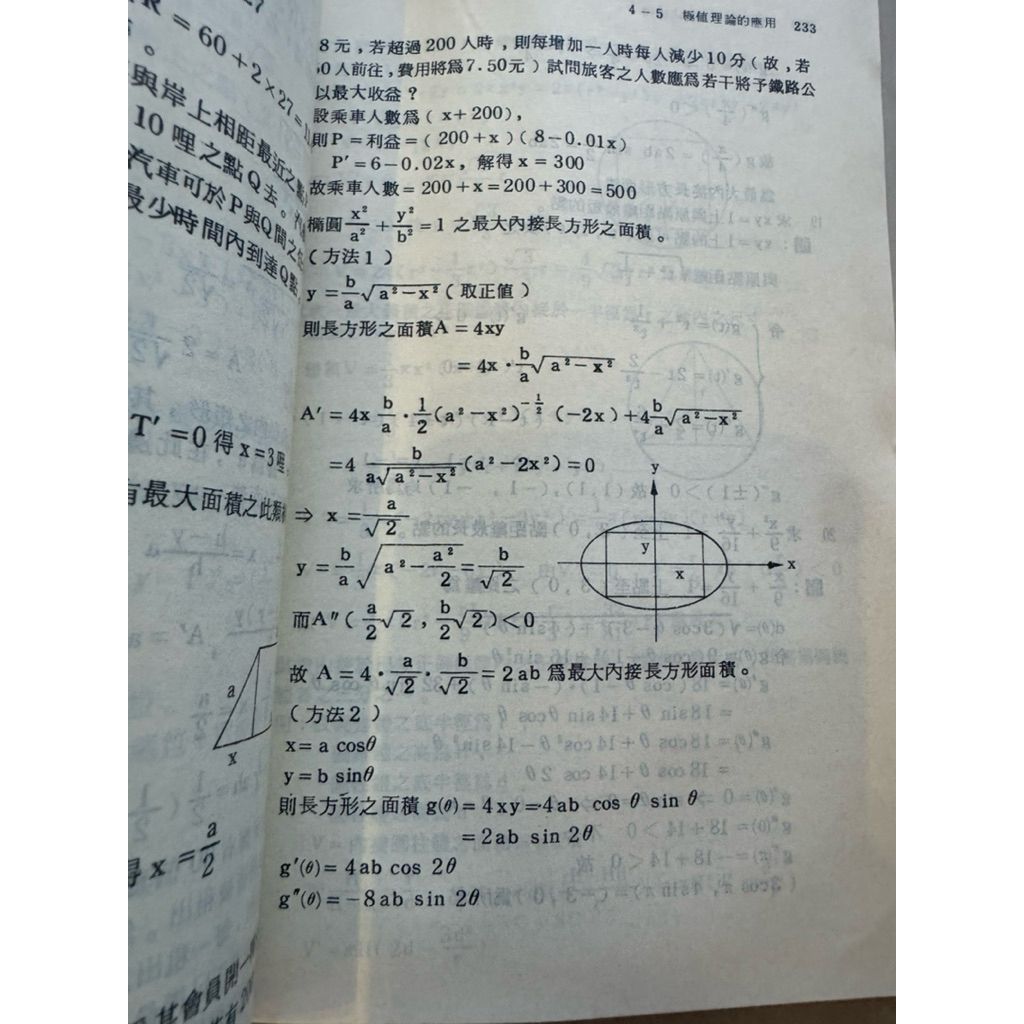 4－5　極值理論的應用　233
8元，若超過200人時，則每增加一人時每人減少10分（故，若
0人前往，費用將爲7.50元）試問旅客之人數應爲若干將予鐵路公
以最大收益？
設乘車人數爲（x＋200），
則P＝利益＝（200＋x）（8－0.01x）
P′＝6－0.02x，解得x＝300
故乘車人數＝200＋x＝200＋300＝500
橢圓 x²/a² ＋ y²/b² ＝1 之最大內接長方形之面積。
（方法1）
y＝b/a √(a²－x²)（取正値）
則長方形之面積A＝4xy
＝4x·b/a √(a²－x²)
A′＝4x b/a · 1/2 (a²－x²)^(－1/2) (－2x)＋4 b/a √(a²－x²)
＝4 b/(a√(a²－x²)) (a²－2x²)＝0
⇒ x＝a/√2
y＝b/a √(a²－a²/2)＝b/√2
而A″（a/2 √2，b/2 √2）＜0
故 A＝4·a/√2·b/√2＝2ab 爲最大內接長方形面積。
（方法2）
x＝a cosθ
y＝b sinθ
則長方形之面積 g(θ)＝4xy＝4ab cos θ sin θ
＝2ab sin 2θ
g′(θ)＝4ab cos 2θ
g″(θ)＝－8ab sin 2θ
y
x
y
x
＝60＋2×27＝
與岸上相距最近之
10哩之點Q去。
汽車可於P與Q間之
最少時間內到達Q點
T′＝0得x＝3哩
有最大面積之此類
a
x
得x＝a/2
其會員開一